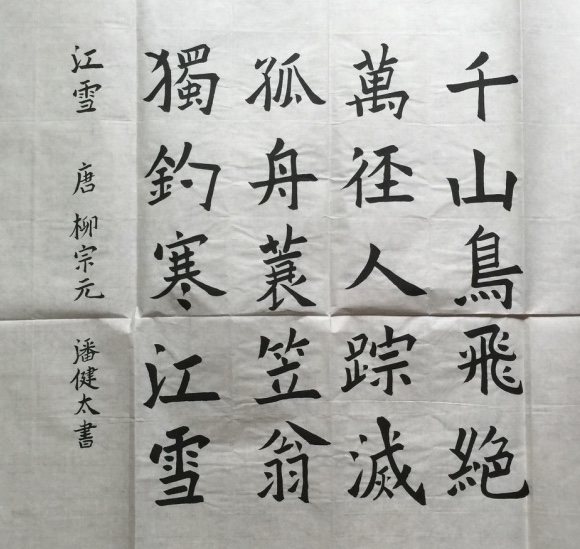 千山鳥飛絕
萬徑人踪滅
孤舟蓑笠翁
獨釣寒江雪
江雪 唐 柳宗元 潘健太書